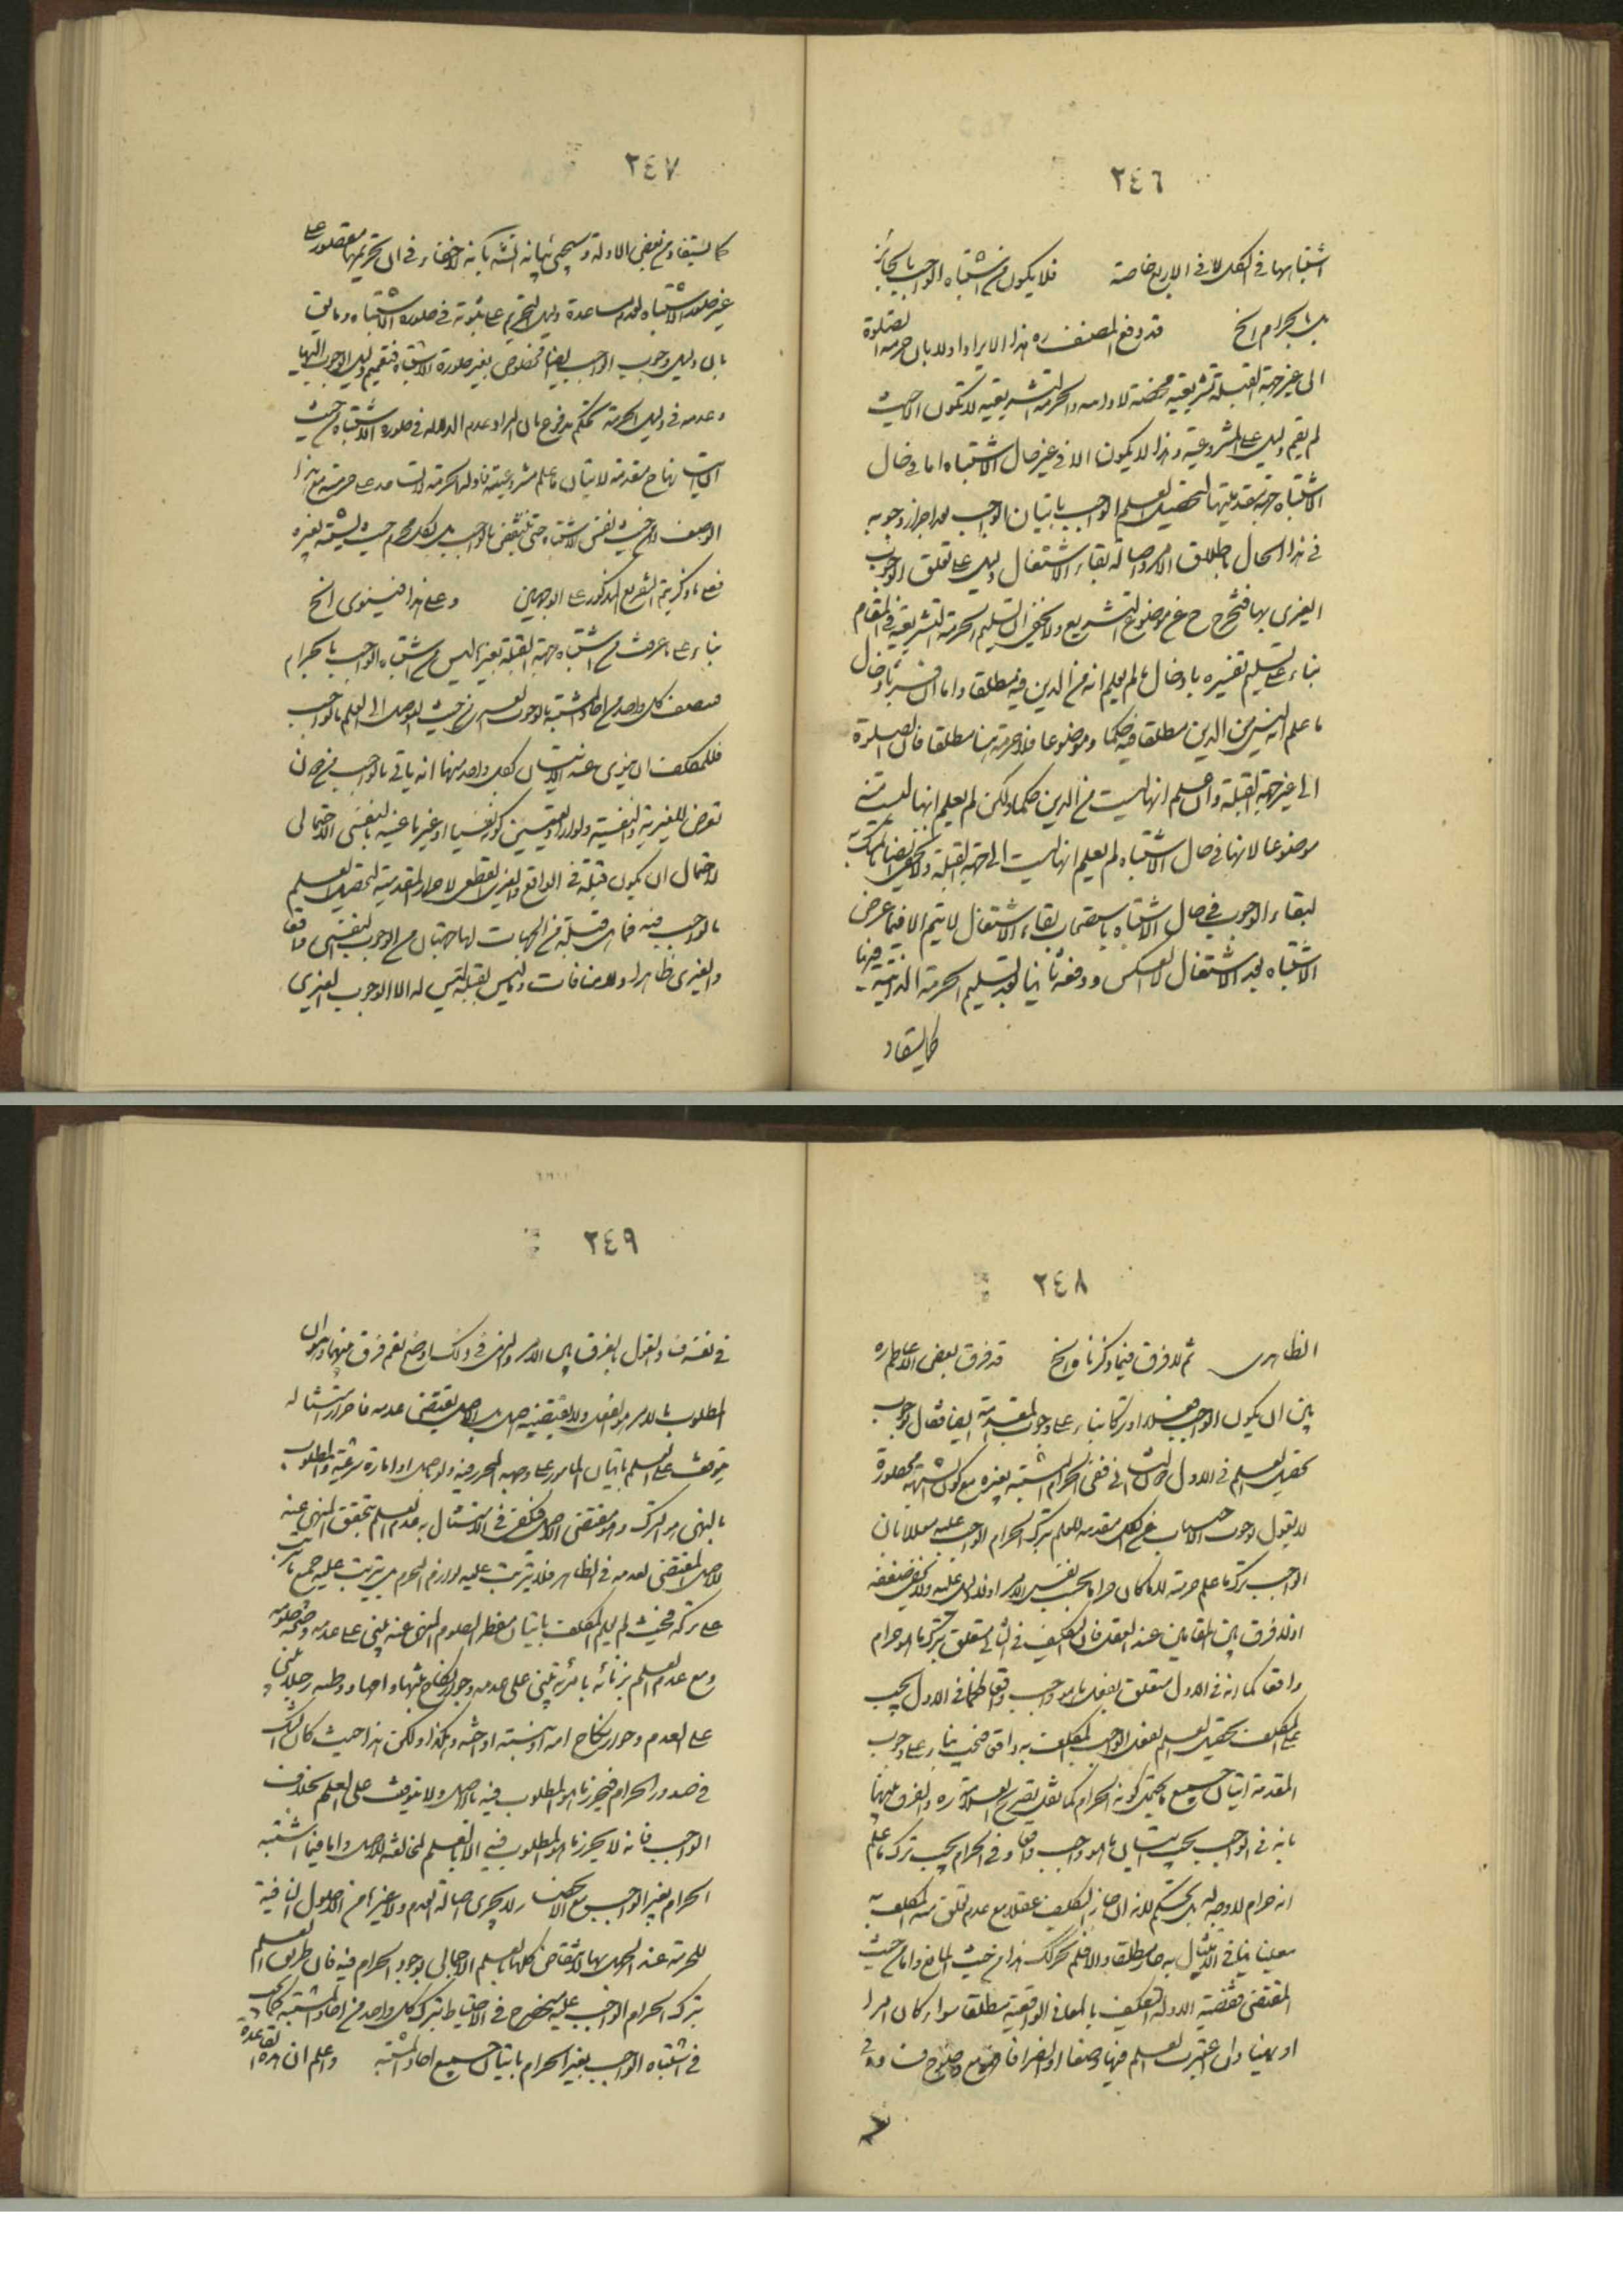 ٢٤٦
اشتباهها في الكل لا في الاربع خاصة فلا يكون من اشتباه الواجب بالجائز
بل بالحرام الخ قد دفع المصنف ره هذا الايراد اولا بان حرمة الصلوة
الى غير جهة القبلة تشريعية محضة لا والحرمة التشريعية لا تكون الا حيث
لم يقم دليل على المشروعية وهذا لا يكون الا في غير حال الاشتباه اما في حال
الاشتباه فجهة مقدميتها لتحصيل العلم الواجب باتيان الواجب بعد احراز وجوبه
في هذا الحال باطلاق الامر او اصالة بقاء الاشتغال دليل على تعلق الوجوب
الغيري بها فتخرج ح عن موضوع التشريع ولا يخفى ان تسليم الحرمة التشريعية في المقام
بناء على تسليم تفسيره بادخال ما لم يعلم انه من الدين فيه مطلقا واما ان فسر بادخال
ما علم انه ليس من الدين مطلقا فيه حكما وموضوعا فلا حرمة هنا مطلقا فان الصلوة
الى غير جهة القبلة وان علم انها ليست من الدين حكما ولكن لم يعلم انها ليست منه
موضوعا لانها في حال الاشتباه لم يعلم انها ليست الى جهة القبلة ولا يخفى ايضا ان التمسك
لبقاء الوجوب في حال الاشتباه باستصحاب بقاء الاشتغال لا يتم الا فيما عرض
الاشتباه بعد الاشتغال لا العكس ودفعه ثانيا بعد تسليم الحرمة الذاتية
كما يستفاد
٢٤٧
كما يستفاد من بعض الادلة وسيجئ بيانه انشاء بانه لا خفاء في ان تحريمها مقصور على
غير صورة الاشتباه لعدم مساعدة دليل التحريم على ثبوته في صورة الاشتباه وما يق
بان دليل وجوب الواجب ايضا مخصوص بغير صورة الاشتباه فتعميم دليل الوجوب اليها
وعدمه في دليل الحرمة تحكم مدفوع بان المراد عدم الدلالة في صورة الاشتباه من حيث
الاتيان بها ح مقدمة لاتيان ما علم مشروعيته فادلة الحرمة لا تساعد على حرمته مع هذا
الوصف لا من حيث نفس الاشتباه حتى ينتقض بالواجب بل بكل محرم حيث يشتبه بغيره
فعلى ما ذكر يتم التفريع المذكور على الوجهين وعلى هذا فينوى الخ
بناء على ما عرفت من ان اشتباه جهة القبلة بغيرها ليس من اشتباه الواجب بالحرام
فيتصف كل واحد من احاد المشتبه بالوجوب الغيري من حيث التوصل الى العلم بالواجب
فللمكلف ان ينوى عند الاتيان بكل واحد منها انه ياتي بالواجب من دون
تعرض للغيرية والنفسية ولو اراد التعيين كونه نفسيا او غيريا عينه بالنفسي الاحتمالي
لاحتمال ان يكون قبلة في الواقع والغيري القطعي لاحراز المقدمية لتحصيل العلم
بالواجب فيه فما هي قبلة من الجهات لها جهتان من الوجوب النفسي واقعا
والغيري ظاهرا ولا منافات وما ليس بقبلة ليس له الا الوجوب الغيري
٢٤٨
الظاهري ثم لا فرق فيما ذكرناه الخ قد فرق بعض الاعاظم ره
بين ان يكون الواجب فعلا او تركا بناء على وجوب المقدمة ايضا فقال بوجوب
تحصيل العلم في الاول دون الثاني ففي الحرام المشتبه بغيره مع كون الشبهة محصورة
لا يقول بوجوب الاجتناب عن الكل مقدمة للعلم بترك الحرام الواجب عليه معللا بان
الواجب ترك ما علم حرمته لا ما كان حراما بحسب نفس الامر اذ لا دليل عليه ولا يخفى ضعفه
اذ لا فرق بين المقامين عند العقل فان التكليف في الثاني متعلق بترك ما هو حرام
واقعا كما انه في الاول متعلق بفعل ما هو واجب واقعا فكما في الاول يجب
على المكلف تحصيل العلم بفعل الواجب المكلف به واقعا فيجب بناء على وجوب
المقدمة اتيان جميع ما يحتمل كونه الحرام كما نقل تصريح العلامة ره والفرق بينهما
بانه في الواجب يجب اتيان ما هو واجب واقعا وفي الحرام يجب ترك ما علم
انه حرام لا وجه له بل تحكم لانه ان جاز التكليف عقلا مع عدم تعلق منه المكلف به
معينا في الامتثال به جاز مطلقا والا فلم يجز كك هذا من حيث المانع واما من حيث
المقتضى فقضية الادلة التكليف بالمعاني الواقعية مطلقا سواء كان امرا
او نهيا وان اعتبرت العلم فيها وصفا او انصرافا فهو مع وضوح فساده في
٢٤٩
في نفسه فالقول بالفرق بين الامر والنهي في ذلك اوضح نعم فرق بينهما وهو ان
المطلوب بالامر هو الفعل ولا يقتضيه اصل بل الاصل يقتضى عدمه فاحراز امتثاله
يتوقف على العلم باتيان المامور على وجهه المحرز فيه ولو باصل او امارة شرعية والمطلوب
بالنهي هو الترك وهو مقتضى الاصل فيكفى في الامتثال به عدم العلم بتحقق المنهي عنه
للاصل المقتضى لعدمه في الظاهر فلا يترتب عليه لوازم المحرم بل يترتب عليه جميع ما يترتب
على تركه فحيث لم يعلم المكلف باتيان مفطر الصوم المنهي عنه يبنى على عدمه وصحة صومه
ومع عدم العلم بزنائه بامرئة يبنى على عدمه وجواز نكاح بنتها واحد ووطيه رجلا يبنى
على العدم وجواز نكاح امه او بنته او اخته وهكذا ولكن هذا حيث كان الشك
في صدور الحرام فيحرز ما هو المطلوب فيه بالاصل ولا يتوقف على العلم بخلاف
الواجب فانه لا يحرز ما هو المطلوب فيه الا بالعلم لمخالفته للاصل واما فيما اشتبه
الحرام بغير الواجب مع الانحصار لا يجرى اصالة العدم ولا غيرها من الاصول النافية
للحرمة عند الجهل بها لانتقاض كلها بالعلم الاجمالي بوجود الحرام فيه فان طريق العلم
بترك الحرام الواجب عليه منحصر ح في الاحتياط بترك كل واحد من احاد المشتبه كما يجب
في اشتباه الواجب بغير الحرام باتيان جميع احاد المشتبه واعلم ان هذه القاعدة